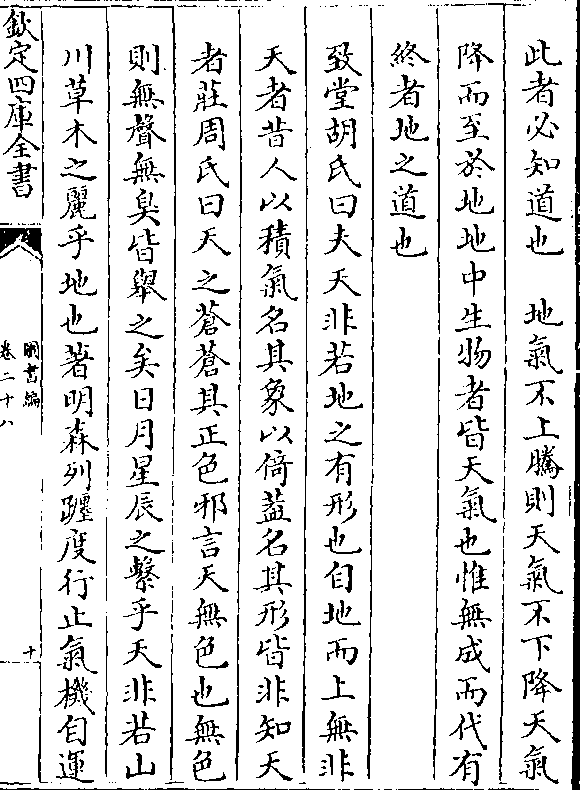 此者必知道也　地氣不上騰則天氣不下降天氣
降而至於地地中生物者皆天氣也惟無成而代有
終者地之道也
致堂胡氏曰夫天非若地之有形也自地而上無非
天者昔人以積氣名其象以倚葢名其形皆非知天
者莊周氏曰天之蒼蒼其正色邪言天無色也無色
則無聲無臭皆舉之矣日月星辰之繫乎天非若山
川草木之麗乎地也著明森列躔度行止氣機自運
欽定四庫全書
圖書編
卷二十八
十